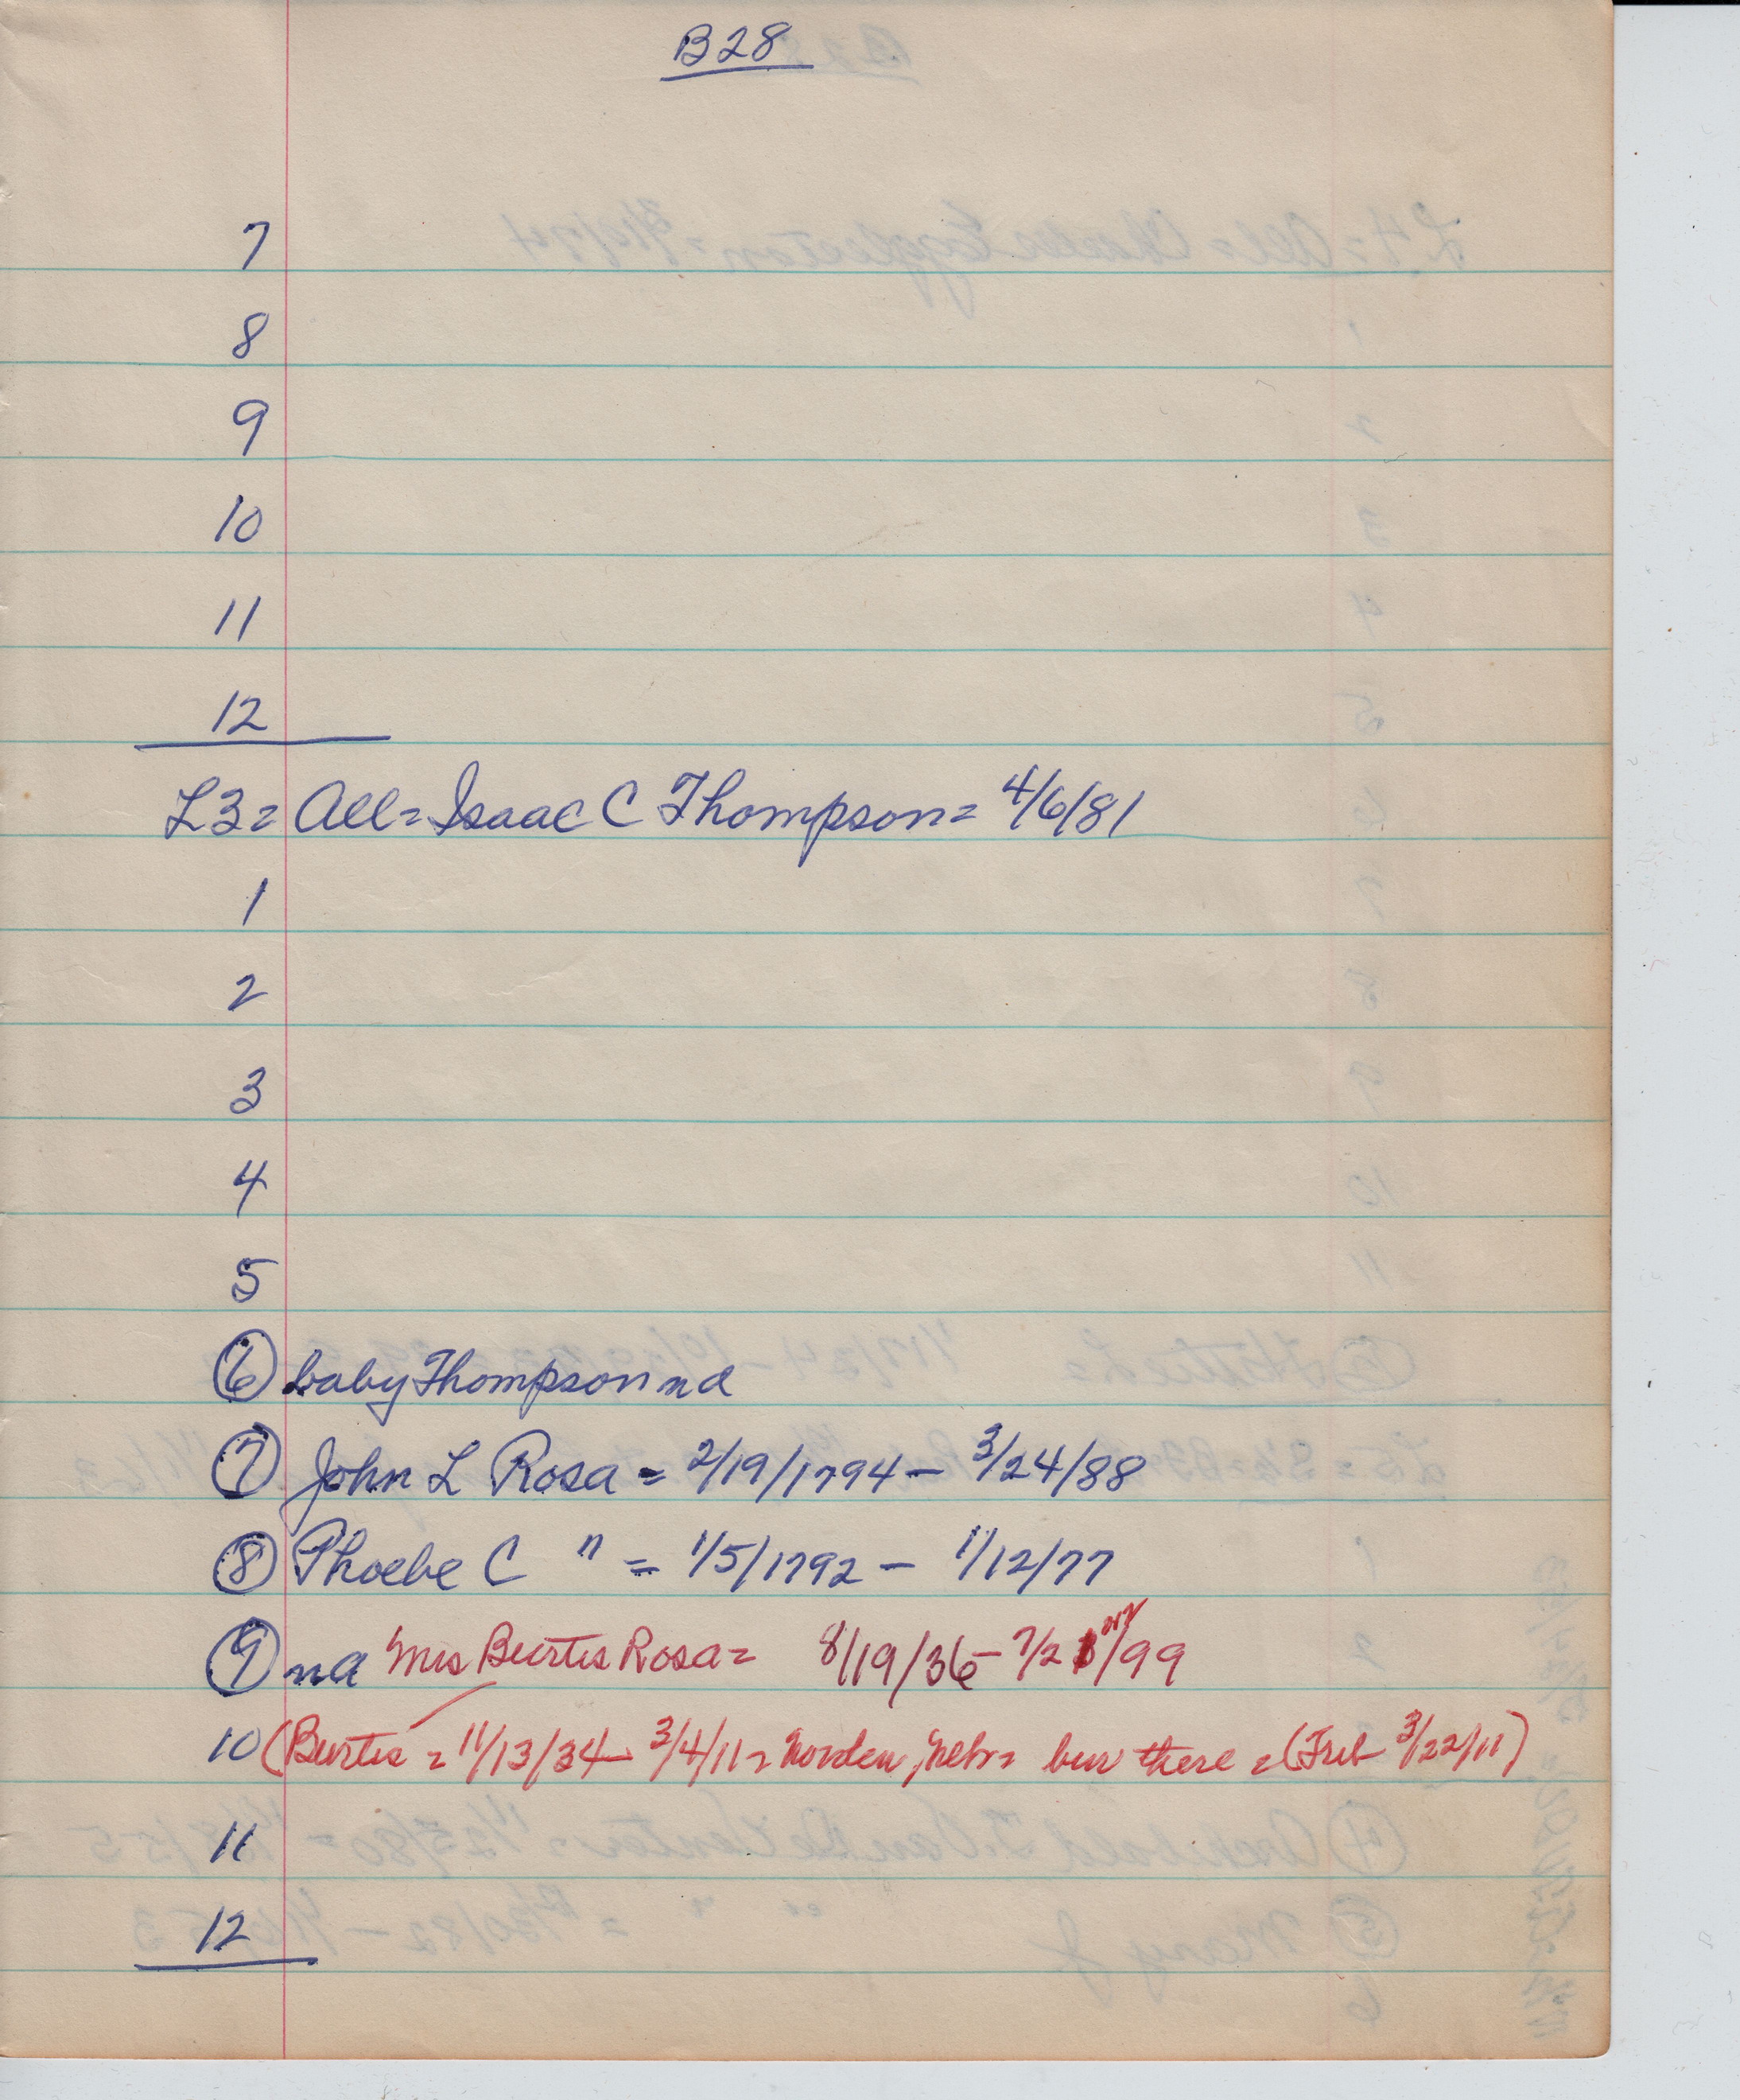 B28
7
8
9
10
11
12
L3 = All = Isaac C Thompson = 4/6/81
1
2
3
4
5
6 baby Thompson na
7 John L Rosa = 2/19/1794 – 3/24/88
8 Phoebe C " = 1/5/1792 – 1/12/77
9 na Mrs Burtis Rosa = 8/19/36 – 7/2 /99
10 (Burtis = 11/13/34 – 3/4/11 = Norden, Nebr = bur there = (Trib 3/22/11)
11
12